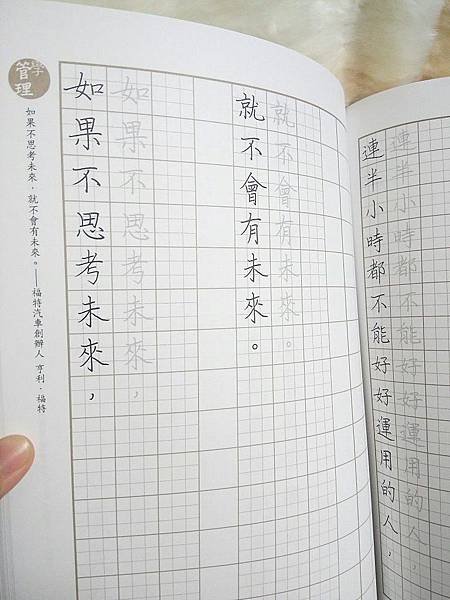 管理學
如果不思考未來，就不會有未來。——福特汽車創辦人 亨利．福特
如果不思考未來，
如果不思考未來，
就不會有未來。
就不會有未來。
連半小時都不能好好運用的人，
連半小時都不能好好運用的人，